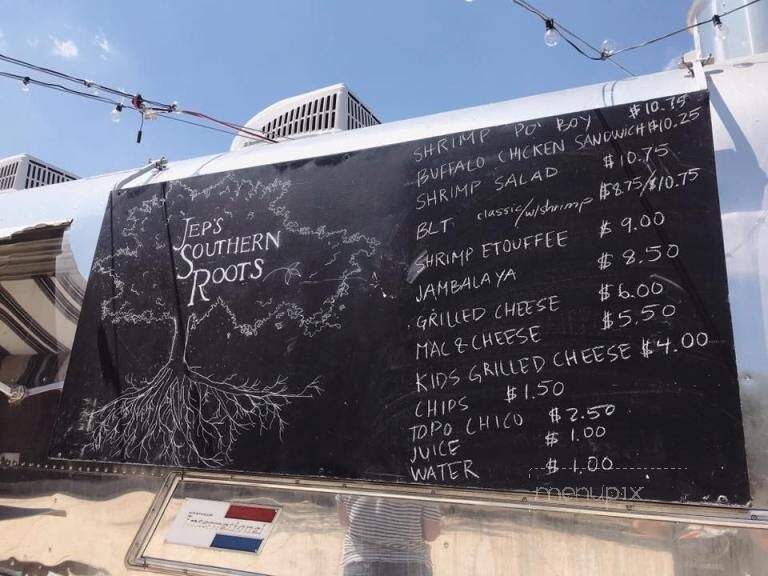 JEP'S
SOUTHERN
ROOTS
SHRIMP PO' BOY $10.75
BUFFALO CHICKEN SANDWICH $10.25
SHRIMP SALAD $10.75
BLT classic/w/shrimp $8.75/$10.75
SHRIMP ETOUFFEE $9.00
JAMBALAYA $8.50
GRILLED CHEESE $6.00
MAC & CHEESE $5.50
KIDS GRILLED CHEESE $4.00
CHIPS $1.50
TOPO CHICO $2.50
JUICE $1.00
WATER $1.00
menupix
International